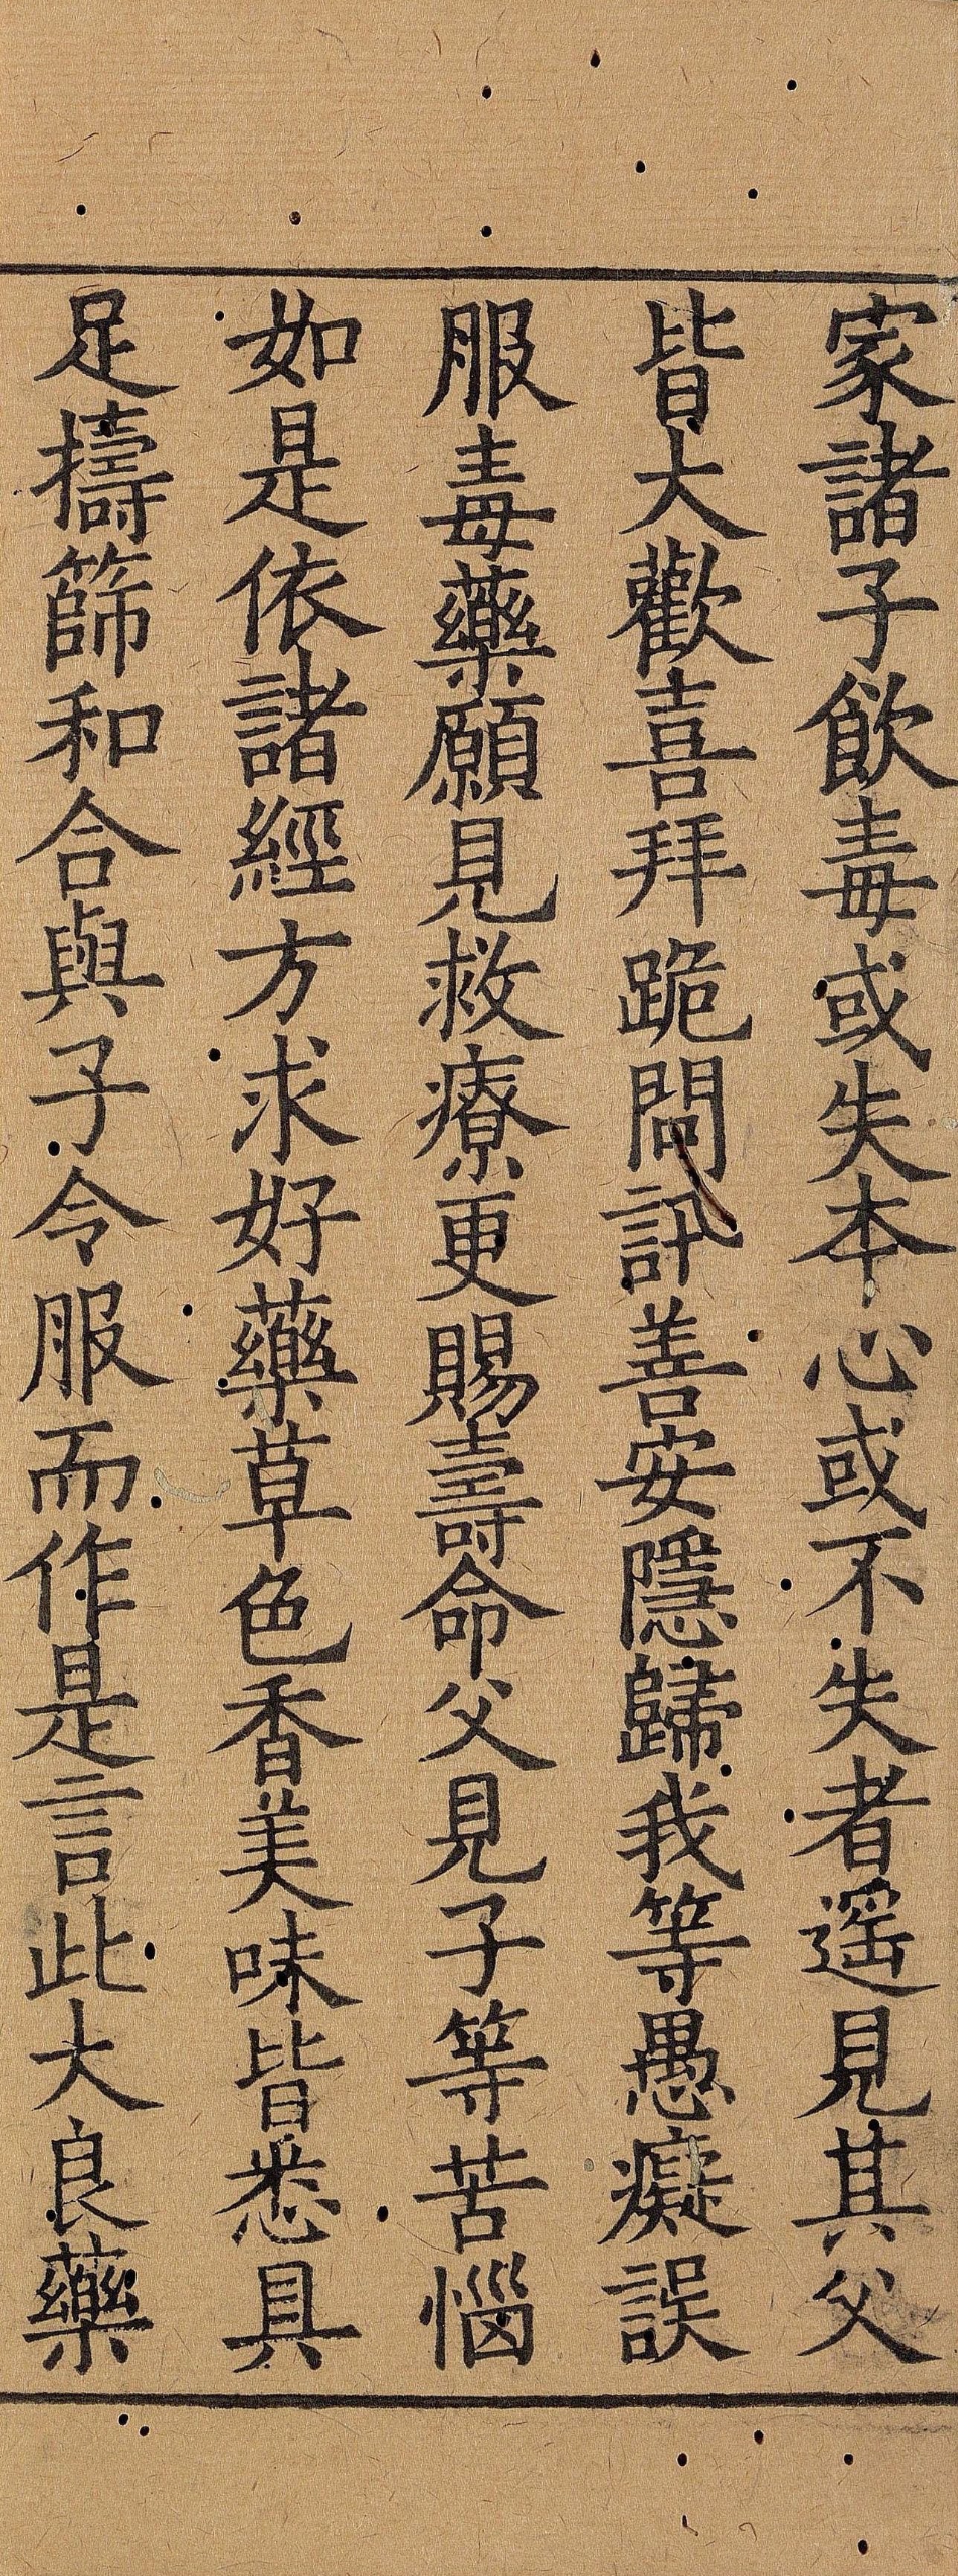 家諸子飲毒或失本心或不失者遥見其父
皆大歡喜拜跪問訊善安隱歸我等愚癡誤
服毒藥願見救療更賜壽命父見子等苦惱
如是依諸經方求好藥草色香美味皆悉具
足擣篩和合與子令服而作是言此大良藥